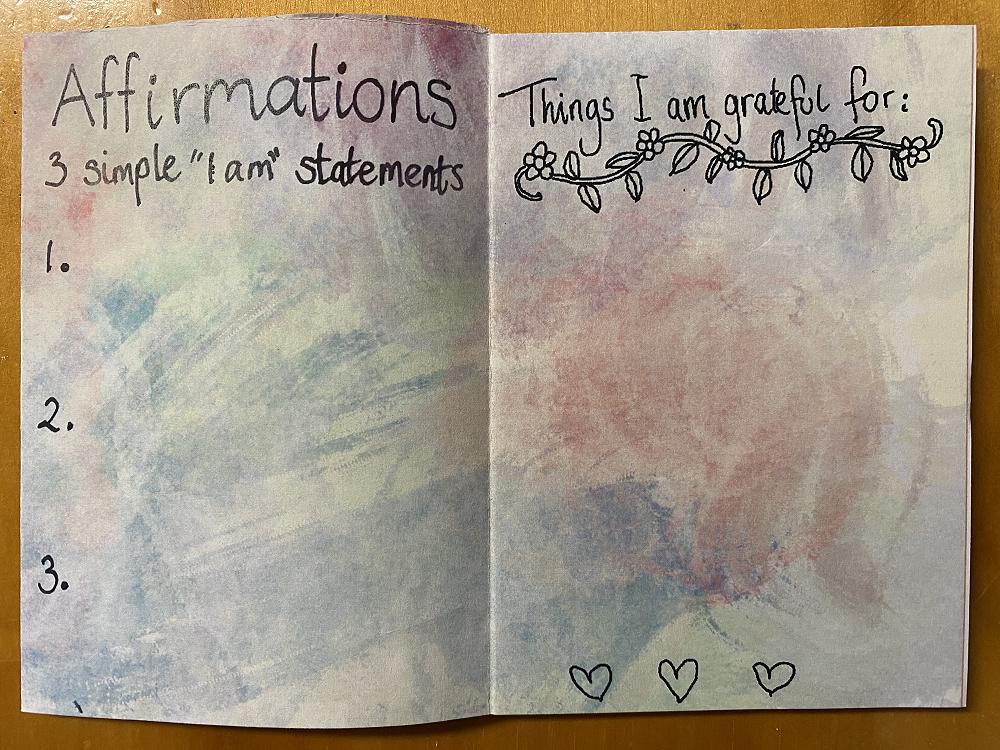 Affirmations
3 simple "I am" statements
1.
2.
3.
Things I am grateful for: